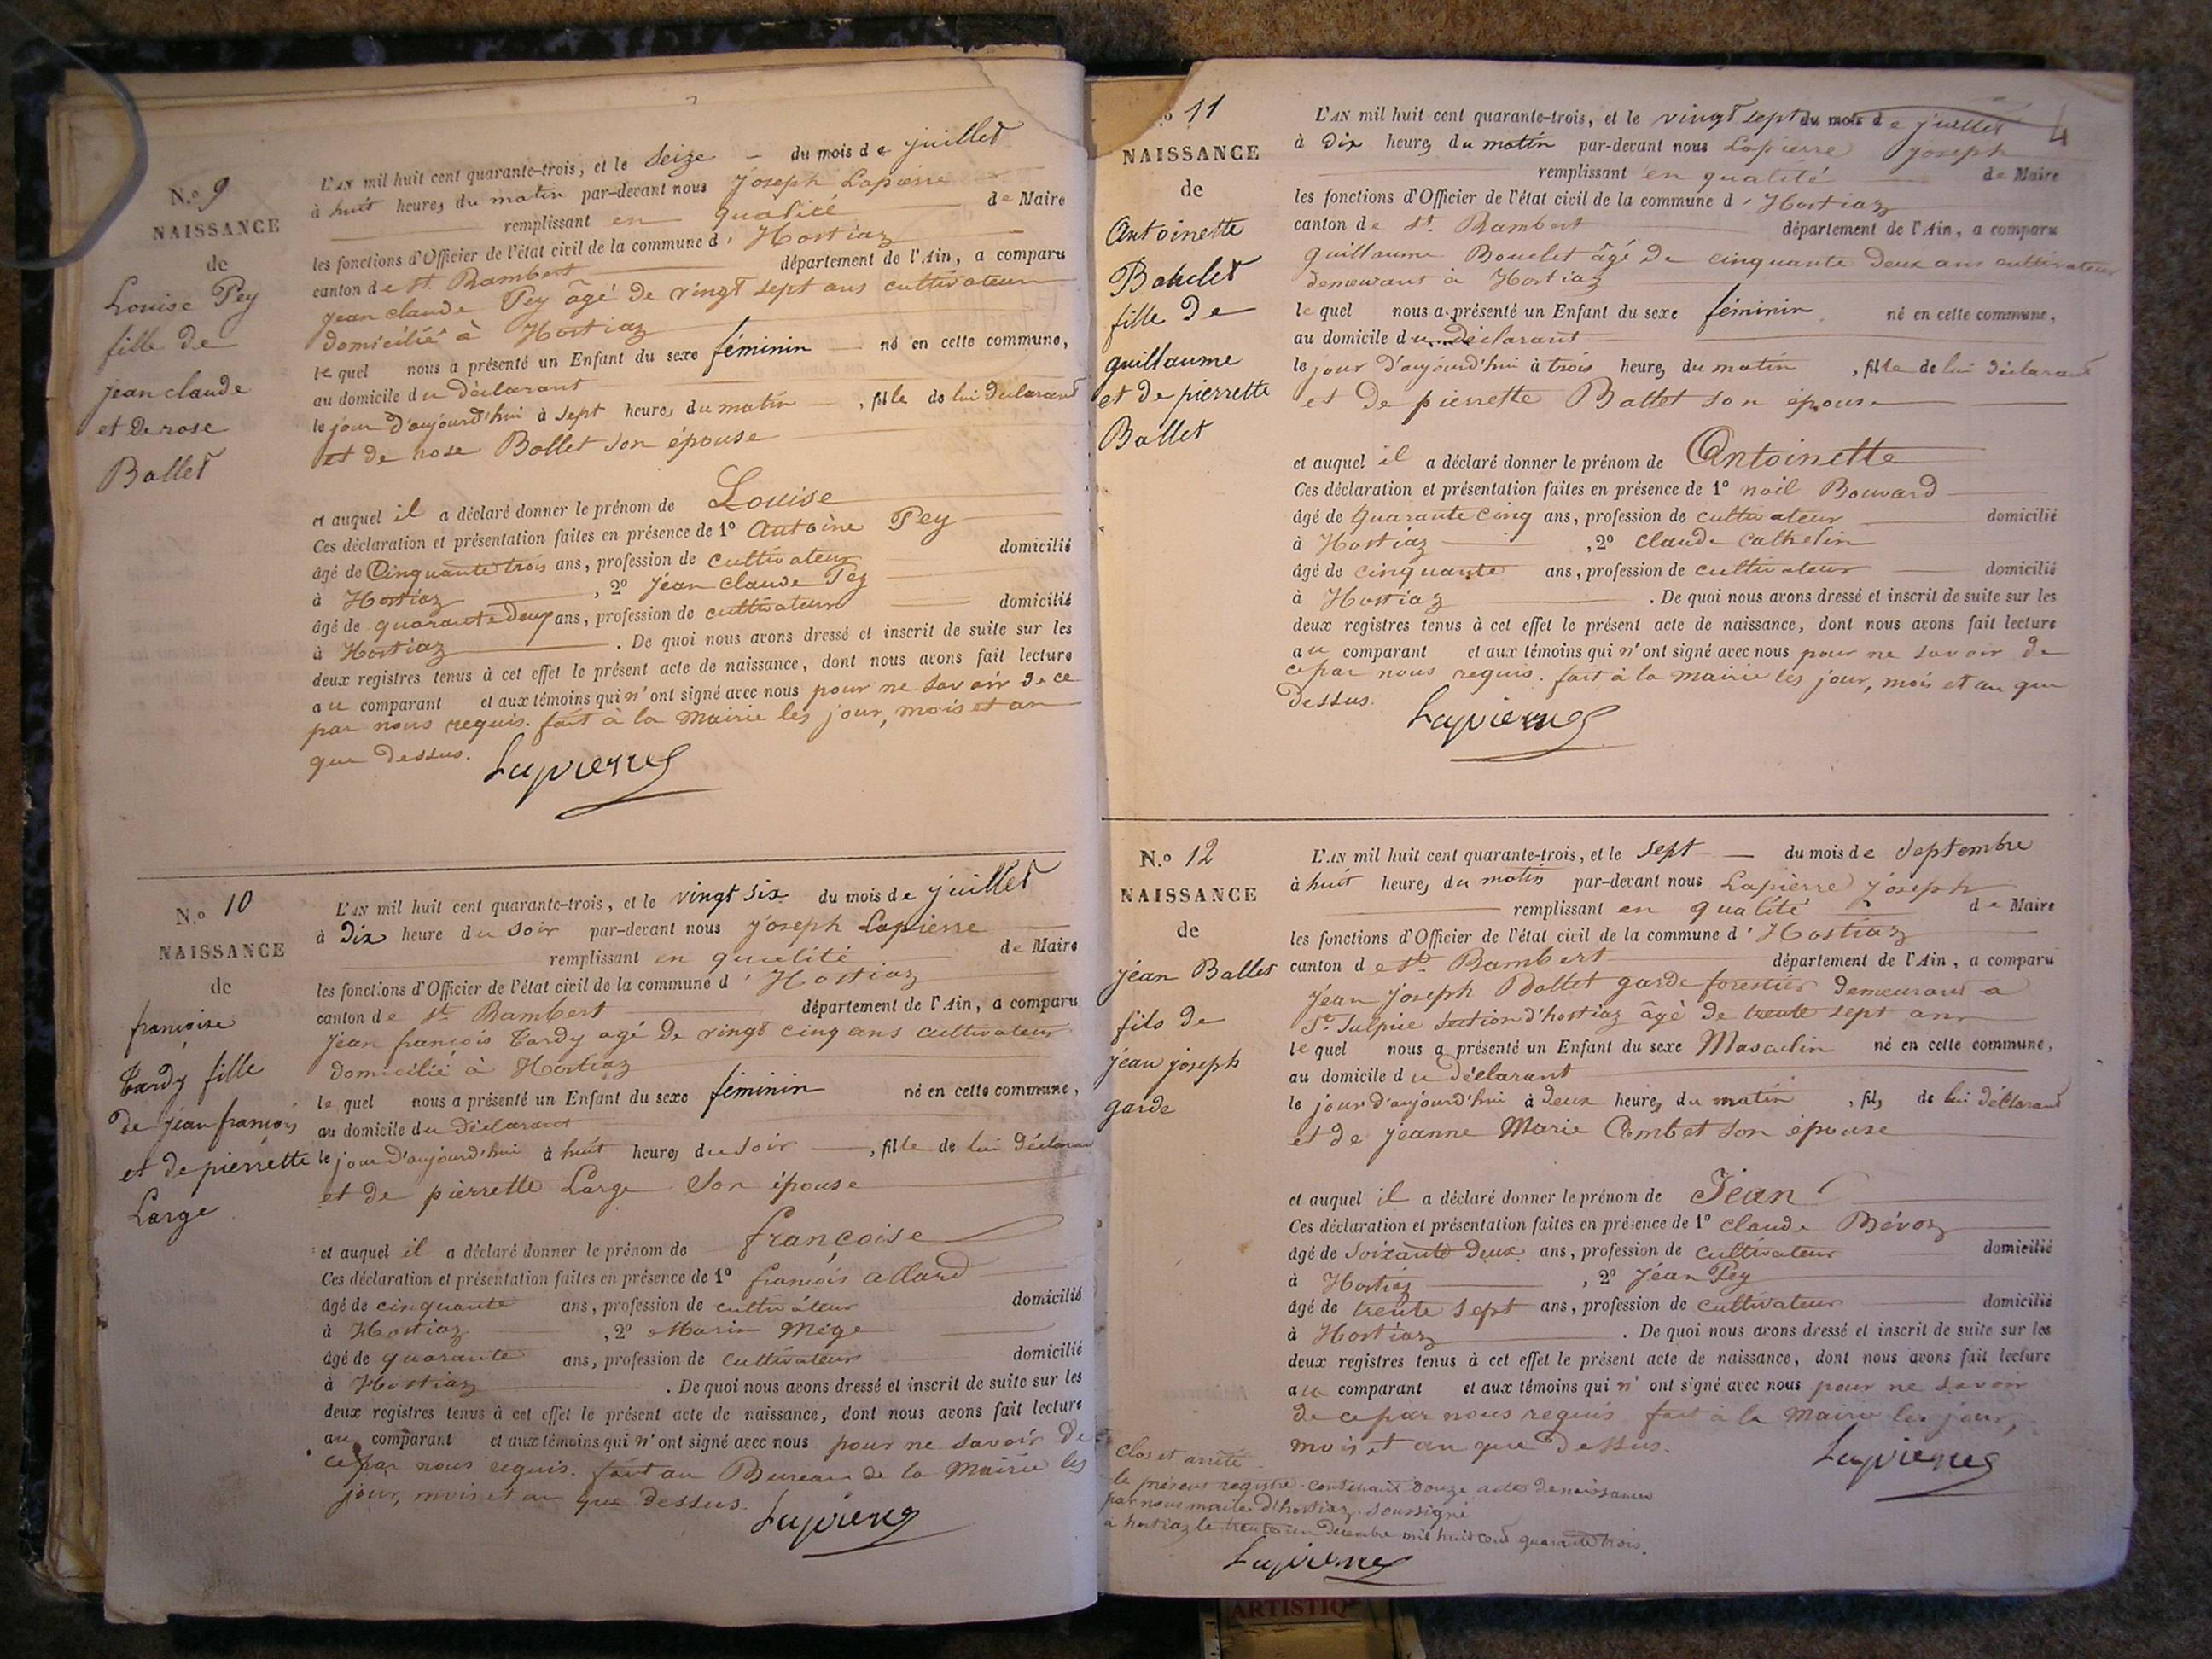 N.o 9
NAISSANCE
de
Louise Pey
fille de
jean claude
et de rose
Ballet
L'AN mil huit cent quarante-trois, et le seize du mois de juillet
à huit heures du matin par-devant nous joseph Lapierre
remplissant en qualité de Maire
les fonctions d'Officier de l'état civil de la commune d'Hostiaz
canton de St. Rambert département de l'Ain, a comparu
jean claude Pey âgé de vingt sept ans cultivateur
domicilié à Hostiaz
lequel nous a présenté un Enfant du sexe féminin né en cette commune,
au domicile du déclarant
le jour d'aujourd'hui à sept heures du matin, fille de lui déclarant
et de rose Ballet son épouse
et auquel il a déclaré donner le prénom de Louise
Ces déclaration et présentation faites en présence de 1o Antoine Pey
âgé de Cinquante trois ans, profession de cultivateur domicilié
à Hostiaz, 2o Jean Claude Pey
âgé de quarante deux ans, profession de cultivateur domicilié
à Hostiaz. De quoi nous avons dressé et inscrit de suite sur les
deux registres tenus à cet effet le présent acte de naissance, dont nous avons fait lecture
au comparant et aux témoins qui n'ont signé avec nous pour ne savoir de ce
par nous requis. fait à la Mairie les jour, mois et an
que dessus. Lapierre
N.o 10
NAISSANCE
de
françoise
Tardy fille
de jean françois
et de pierrette
Large
L'AN mil huit cent quarante-trois, et le vingt six du mois de juillet
à Dix heure du soir par-devant nous joseph Lapierre
remplissant en qualité de Maire
les fonctions d'Officier de l'état civil de la commune d'Hostiaz
canton de St. Rambert département de l'Ain, a comparu
Jean françois Tardy agé de vingt cinq ans cultivateur
domicilié à Hostiaz
lequel nous a présenté un Enfant du sexe féminin né en cette commune,
au domicile du déclarant
le jour d'aujourd'hui à huit heures du soir, fille de lui déclarant
et de pierrette Large son épouse
et auquel il a déclaré donner le prénom de françoise
Ces déclaration et présentation faites en présence de 1o françois allard
âgé de cinquante ans, profession de cultivateur domicilié
à Hostiaz, 2o Marin Mège
âgé de quarante ans, profession de cultivateur domicilié
à Hostiaz. De quoi nous avons dressé et inscrit de suite sur les
deux registres tenus à cet effet le présent acte de naissance, dont nous avons fait lecture
au comparant et aux témoins qui n'ont signé avec nous pour ne savoir de
ce par nous requis. fait au Bureau de la Mairie les
jour, mois et an que dessus.
Lapierre
4
N.o 11
NAISSANCE
de
Antoinette
Bouclet
fille de
guillaume
et de pierrette
Ballet
L'AN mil huit cent quarante-trois, et le vingt sept du mois de juillet
à dix heures du matin par-devant nous Lapierre joseph
remplissant en qualité de Maire
les fonctions d'Officier de l'état civil de la commune d'Hostiaz
canton de St. Rambert département de l'Ain, a comparu
guillaume Bouclet âgé de cinquante deux ans cultivateur
demeurant à Hostiaz
lequel nous a présenté un Enfant du sexe féminin né en cette commune,
au domicile du déclarant
le jour d'aujourd'hui à trois heures du matin, fille de lui déclarant
et de pierrette Ballet son épouse
et auquel il a déclaré donner le prénom de Antoinette
Ces déclaration et présentation faites en présence de 1o noil Bouvard
âgé de Quarante Cinq ans, profession de cultivateur domicilié
à Hostiaz, 2o claude Cathelin
âgé de cinquante ans, profession de cultivateur domicilié
à Hostiaz. De quoi nous avons dressé et inscrit de suite sur les
deux registres tenus à cet effet le présent acte de naissance, dont nous avons fait lecture
au comparant et aux témoins qui n'ont signé avec nous pour ne savoir de
ce par nous requis. fait à la mairie les jour, mois et an que
dessus. Lapierre
N.o 12
NAISSANCE
de
jean Ballet
fils de
jean joseph
garde
L'AN mil huit cent quarante-trois, et le sept du mois de septembre
à huit heures du matin par-devant nous Lapierre joseph
remplissant en qualité de Maire
les fonctions d'Officier de l'état civil de la commune d'Hostiaz
canton de St. Rambert département de l'Ain, a comparu
Jean Joseph Ballet garde forestier demeurant a
St. Sulpice section d'hostiaz âgé de trente sept ans
lequel nous a présenté un Enfant du sexe Masculin né en cette commune,
au domicile du déclarant
le jour d'aujourd'hui à deux heures du matin, fils de lui déclarant
et de jeanne Marie Combet son épouse
et auquel il a déclaré donner le prénom de Jean
Ces déclaration et présentation faites en présence de 1o claude Bévoz
âgé de soixante deux ans, profession de cultivateur domicilié
à Hostiaz, 2o Jean Pey
âgé de trente sept ans, profession de cultivateur domicilié
à Hostiaz. De quoi nous avons dressé et inscrit de suite sur les
deux registres tenus à cet effet le présent acte de naissance, dont nous avons fait lecture
au comparant et aux témoins qui n'ont signé avec nous pour ne savoir
de ce par nous requis fait à la Mairie les jour,
mois et an que dessus.
Lapierre
Clos et arrêté
le présent registre contenant douze actes de naissances
par nous maire d'hostiaz soussigné
a hostiaz le trente un decembre mil huit cent quarante trois.
Lapierre
ARTISTIQ